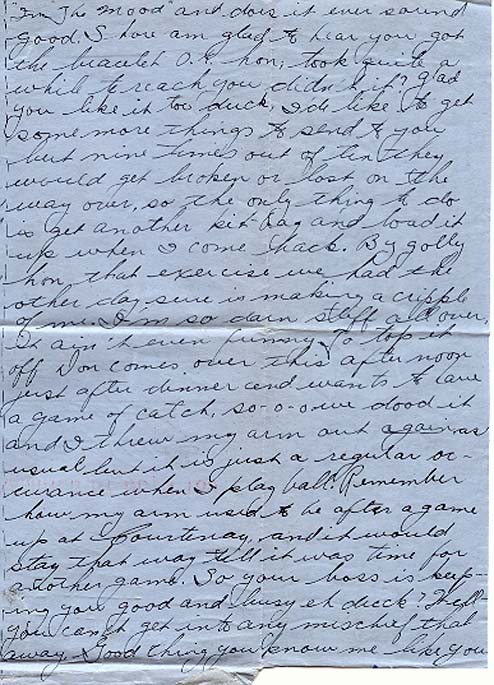 "In The Mood" and does it ever sound
good. Shore am glad to hear you got
the bracelet O.K. hon, took quite a
while to reach you didn't it? Glad
you like it too duck, I'de like to get
some more things to send to you
but nine times out of ten they
would get broken or lost on the
way over, so the only thing to do
is get another kit bag and load it
up when I come back. By golly
hon, that exercise we had the
other day sure is making a cripple
of me. I'm so darn stiff all over,
it ain't even funny. To top it
off Don comes over this afternoon
just after dinner and wants to have
a game of catch, so-o-o we dood it
and I threw my arm out again as
usual but it is just a regular oc-
curance when I play ball. Remember
how my arm used to be after a game
up at Courtenay, and it would
stay that way till it was time for
another game. So your boss is keep-
ing you good and busy eh duck? Well
you can't get into any mischief that
away. Good thing you know me like you